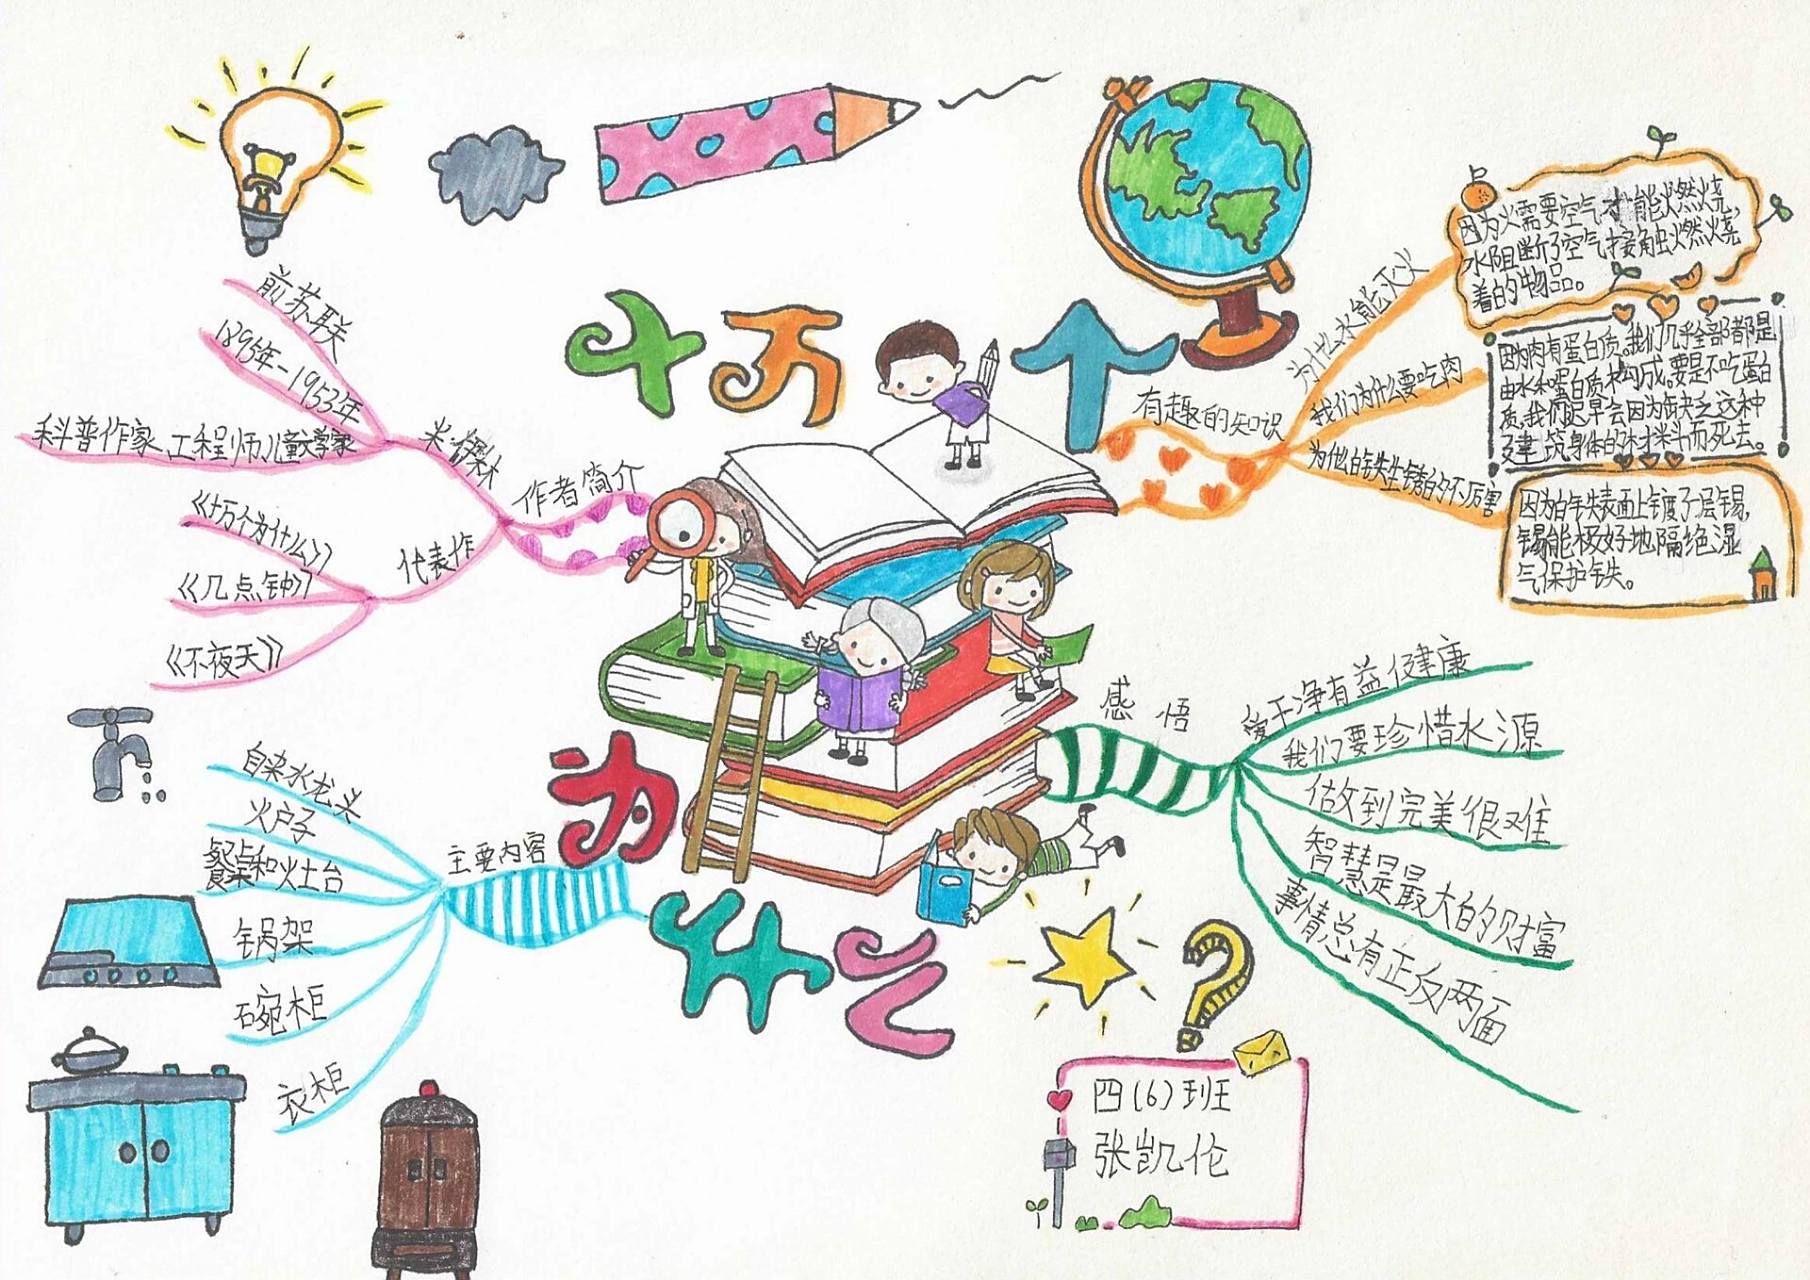 十万个
为
什么
作者简介
米·伊林
前苏联
1895年-1953年
科普作家、工程师、儿童文学家
代表作
《十万个为什么》
《几点钟》
《不夜天》
有趣的知识
为什么水能灭火
因为火需要空气才能火燃烧,
水阻断了空气接触火燃烧
着的物品。
我们为什么要吃肉
因为肉有蛋白质。我们几乎全部都是
由水和蛋白质构成。要是不吃蛋白
质,我们迟早会因为缺乏这种
建筑身体的材料而死去。
为什么白铁生锈的不厉害
因为白铁表面上镀了层锡,
锡能极好地隔绝湿
气保护铁。
主要内容
自来水龙头
火户子
餐桌和火土台
锅架
碗柜
衣柜
感悟
干净有益健康
我们要珍惜水源
做到完美很难
智慧是最大的财富
事情总有正反两面
四(6)班
张凯伦